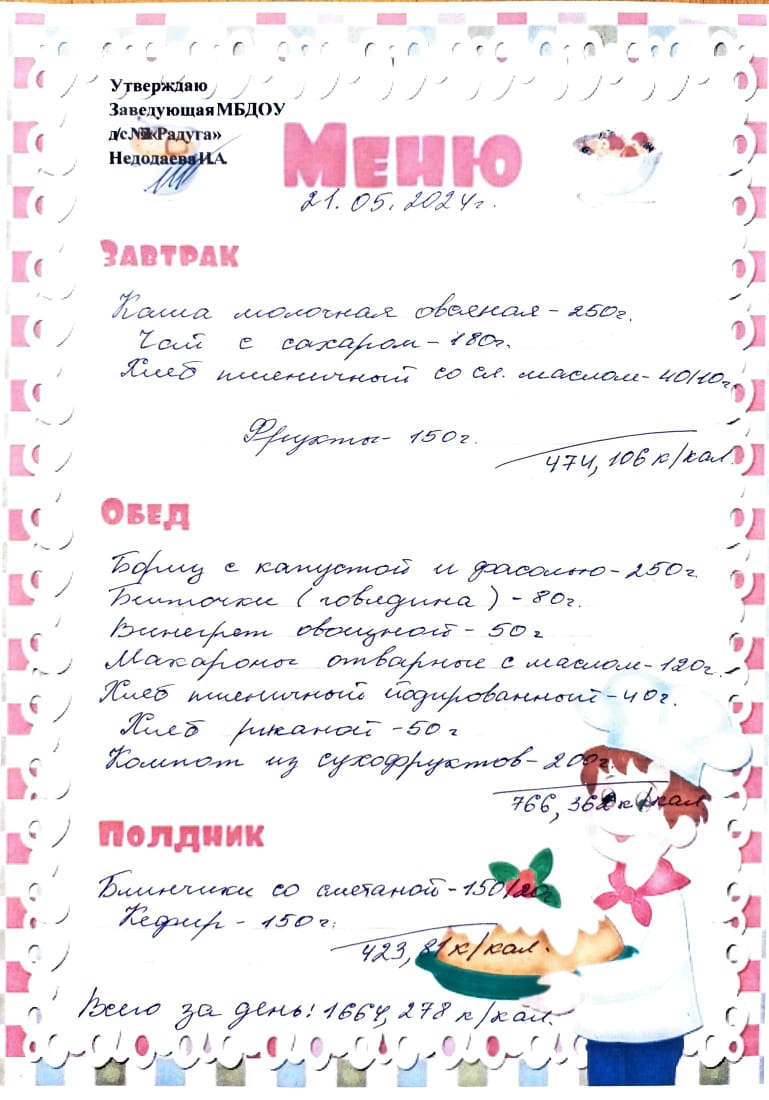 Утверждаю
Заведующая МБДОУ
д/с «Радуга»
Недодаева И.А.
Меню
21.05.2024г.
Завтрак
Каша молочная овсяная - 250г.
Чай с сахаром - 180г.
Хлеб пшеничный со сл. маслом - 40/10г.
Фрукты - 150г.
474,106 к/кал.
Обед
Борщ с капустой и фасолью - 250г.
Биточки (говядина) - 80г.
Винегрет овощной - 50г
Макароны отварные с маслом - 120г.
Хлеб пшеничный йодированный - 40г.
Хлеб ржаной - 50г
Компот из сухофруктов - 200г.
766,362 к/кал
Полдник
Блинчики со сметаной - 150/20г
Кефир - 150г.
423,81 к/кал.
Всего за день: 1664,278 к/кал.